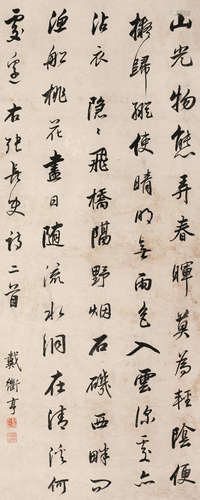 山光物態弄春暉莫為輕陰便
擬歸縱使晴明無雨色入雲深處亦
沾衣隱〻飛橋隔野烟石磯西畔問
漁船桃花盡日隨流水洞在清溪何
處邊右張長史詩二首
戴衢亨